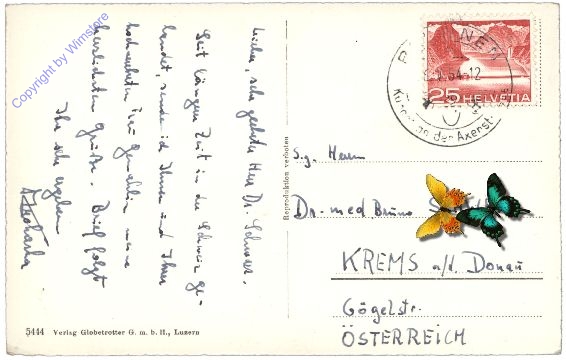 Copyright by Wimstore
Lieber, sehr geehrter Herr Dr.
Seit längerer Zeit in der Schweiz ge-
landet, sende ich Ihnen und Ihrer
hochverehrten Frau Gemahlin meine
herzlichsten Grüße. Brief folgt
Ihr sehr ergebener
5444 Verlag Globetrotter G. m. b. H., Luzern
Reproduktion verboten
54-12
Axenst
25 HELVETIA
S.g. Herrn
Dr. med Bruno
KREMS a/d. Donau
Gögelstr.
ÖSTERREICH